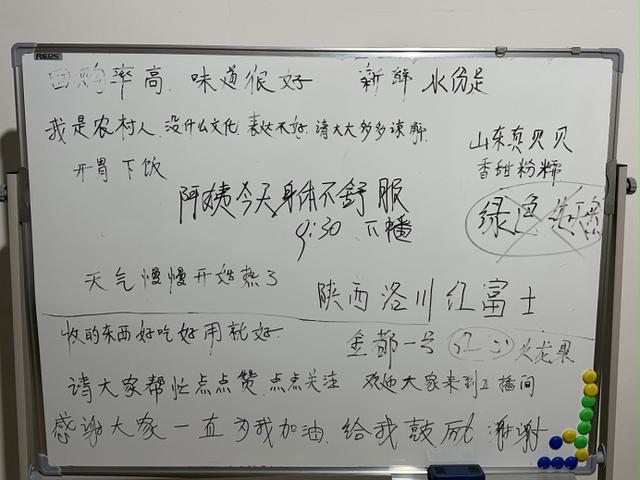 REDS
回购率高. 味道很好 新鲜 水份足
我是农村人. 没什么文化 表达不好. 请大大多多谅解.
山东贝贝
开胃 下饮
香甜粉糯
阿姨今天身体不舒服
绿色
9:30 下播
天气慢慢开始热了
陕西洛川红富士
收的东西好吃好用就好.
金都一号 红心 火龙果
请大家帮忙点点赞. 点点关注 欢迎大家来到直播间
感谢大家一直为我加油. 给我鼓励 谢谢